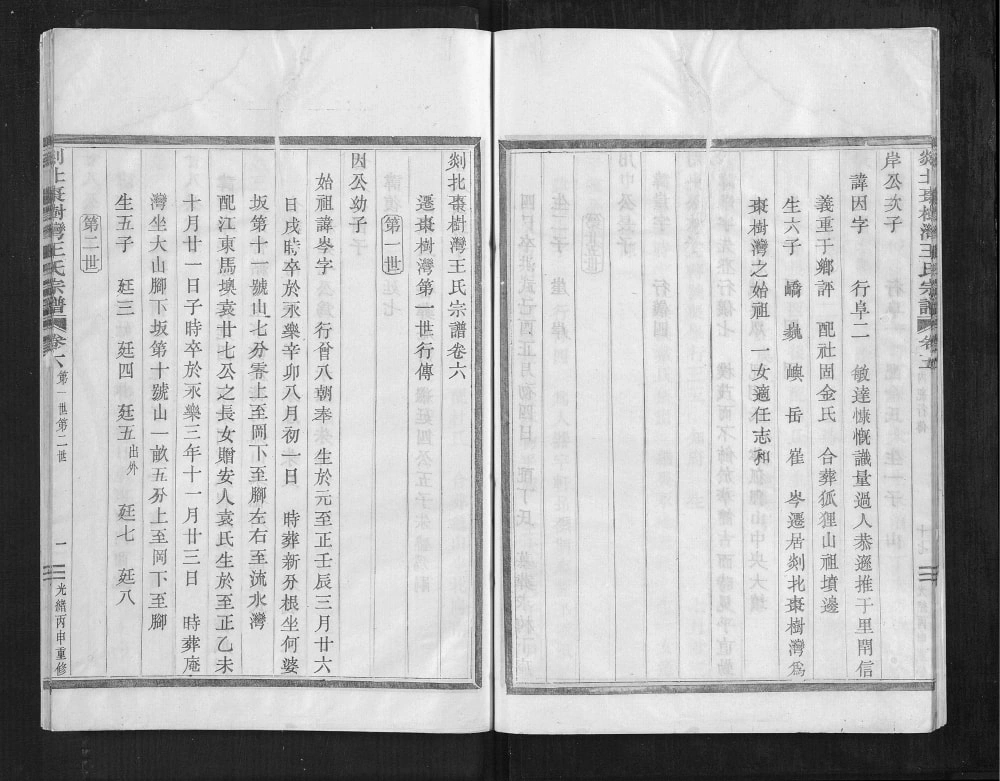 岸公次子
諱因字　行阜二　敏達慷慨識量過人恭遜推于里閈信
義重于鄉評　配社固金氏　合葬狐狸山祖墳邊
生六子　嶠　巍　嶼　岳　崔　岑遷居剡北棗樹灣爲
棗樹灣之始祖　一女適任志和
剡北棗樹灣王氏宗譜卷六
遷棗樹灣第一世行傳
第一世
因公幼子
始祖諱岑字　行曾八朝奉　生於元至正壬辰三月廿六
日戌時卒於永樂辛卯八月初一日　時葬新分根坐何婆
坂第十一號山七分零上至岡下至腳左右至流水灣
配江東馬堘袁廿七公之長女贈安人袁氏生於至正乙未
十月廿一日子時卒於永樂三年十一月廿三日　時葬庵
灣坐大山腳下坂第十號山一畝五分上至岡下至腳
生五子　廷三　廷四　廷五出外　廷七　廷八
第二世
剡北棗樹灣王氏宗譜　卷六　第一世第二世　一　光緒丙申重修